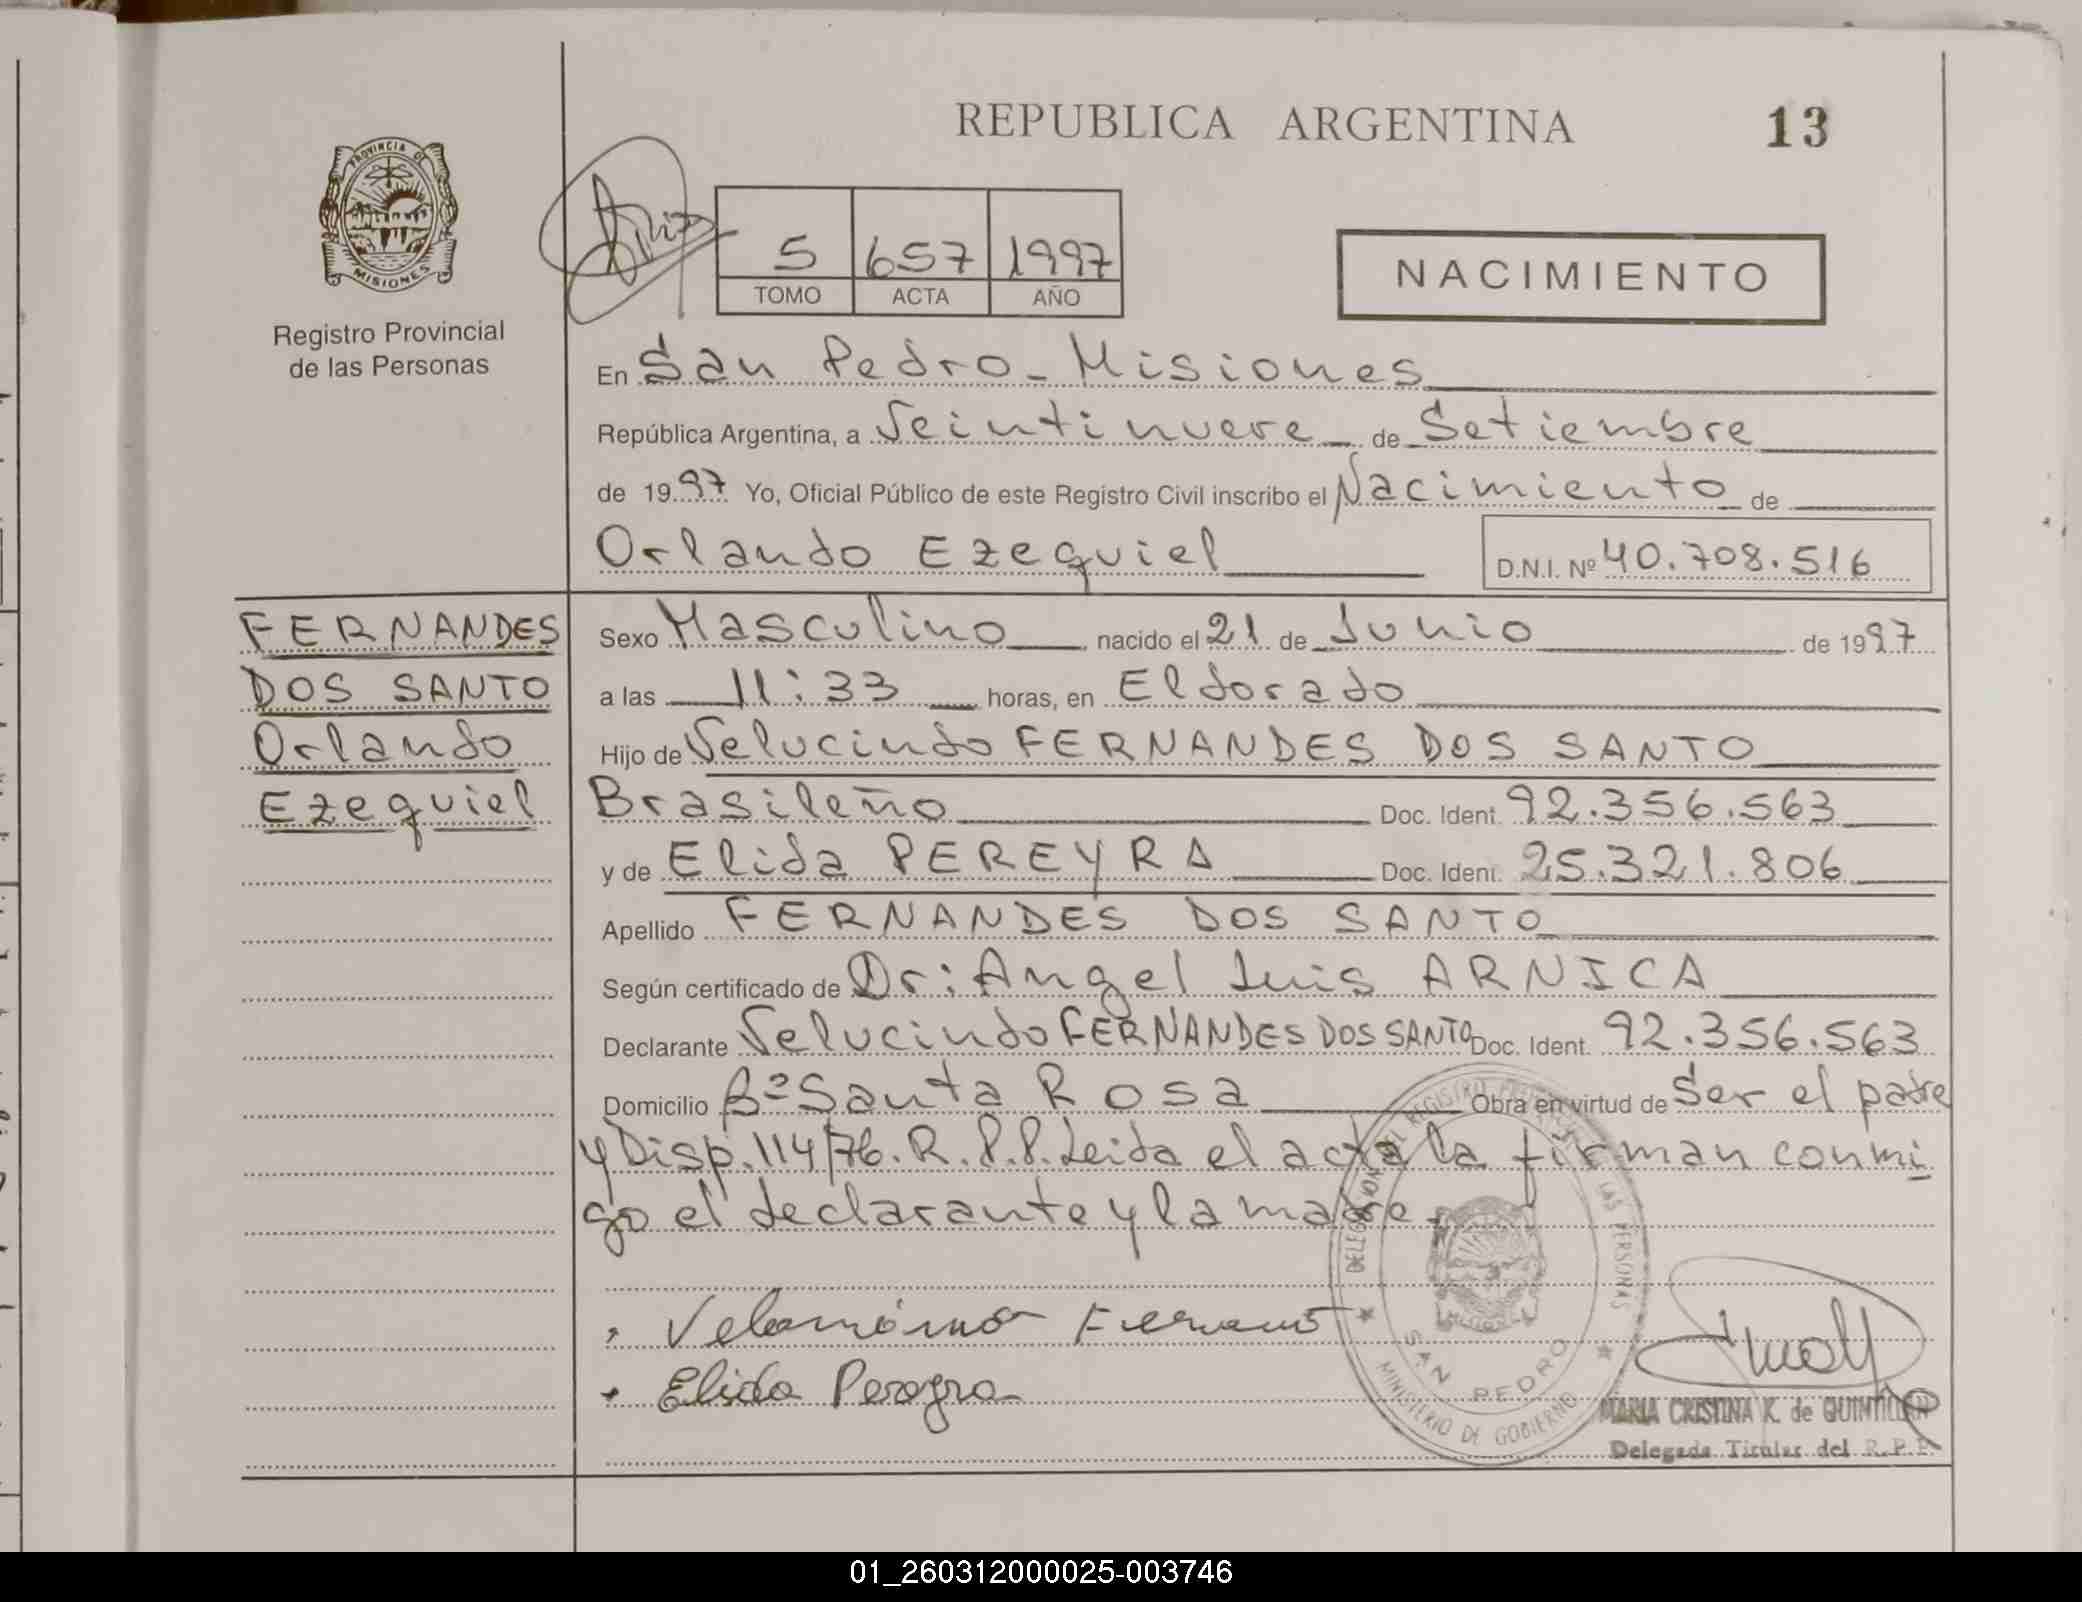 REPUBLICA ARGENTINA
13
PROVINCIA DE
MISIONES
Registro Provincial
de las Personas
5 657 1997
TOMO ACTA AÑO
NACIMIENTO
En San Pedro - Misiones
República Argentina, a Veintinueve de Setiembre
de 1997 Yo, Oficial Público de este Registro Civil inscribo el Nacimiento de
Orlando Ezequiel
D.N.I. Nº 40.708.516
FERNANDES
DOS SANTO
Orlando
Ezequiel
Sexo Masculino nacido el 21 de Junio de 1997
a las 11:33 horas, en Eldorado
Hijo de Velucindo FERNANDES DOS SANTO
Brasileño Doc. Ident. 92.356.563
y de Elida PEREYRA Doc. Ident. 25.321.806
Apellido FERNANDES DOS SANTO
Según certificado de Dr: Angel Luis ARNICA
Declarante Velucindo FERNANDES DOS SANTO Doc. Ident. 92.356.563
Domicilio Bº Santa Rosa Obra en virtud de Ser el padre
y Disp. 114/76. R.P.P. Leida el acta la firman conmi
go el declarante y la madre.
Elida Pereyra
DELEGACION DEL REGISTRO PROVINCIAL DE LAS PERSONAS
SAN PEDRO
MINISTERIO DE GOBIERNO
MARIA CRISTINA K. de
Delegada Titular del R.P.P.
01_260312000025-003746